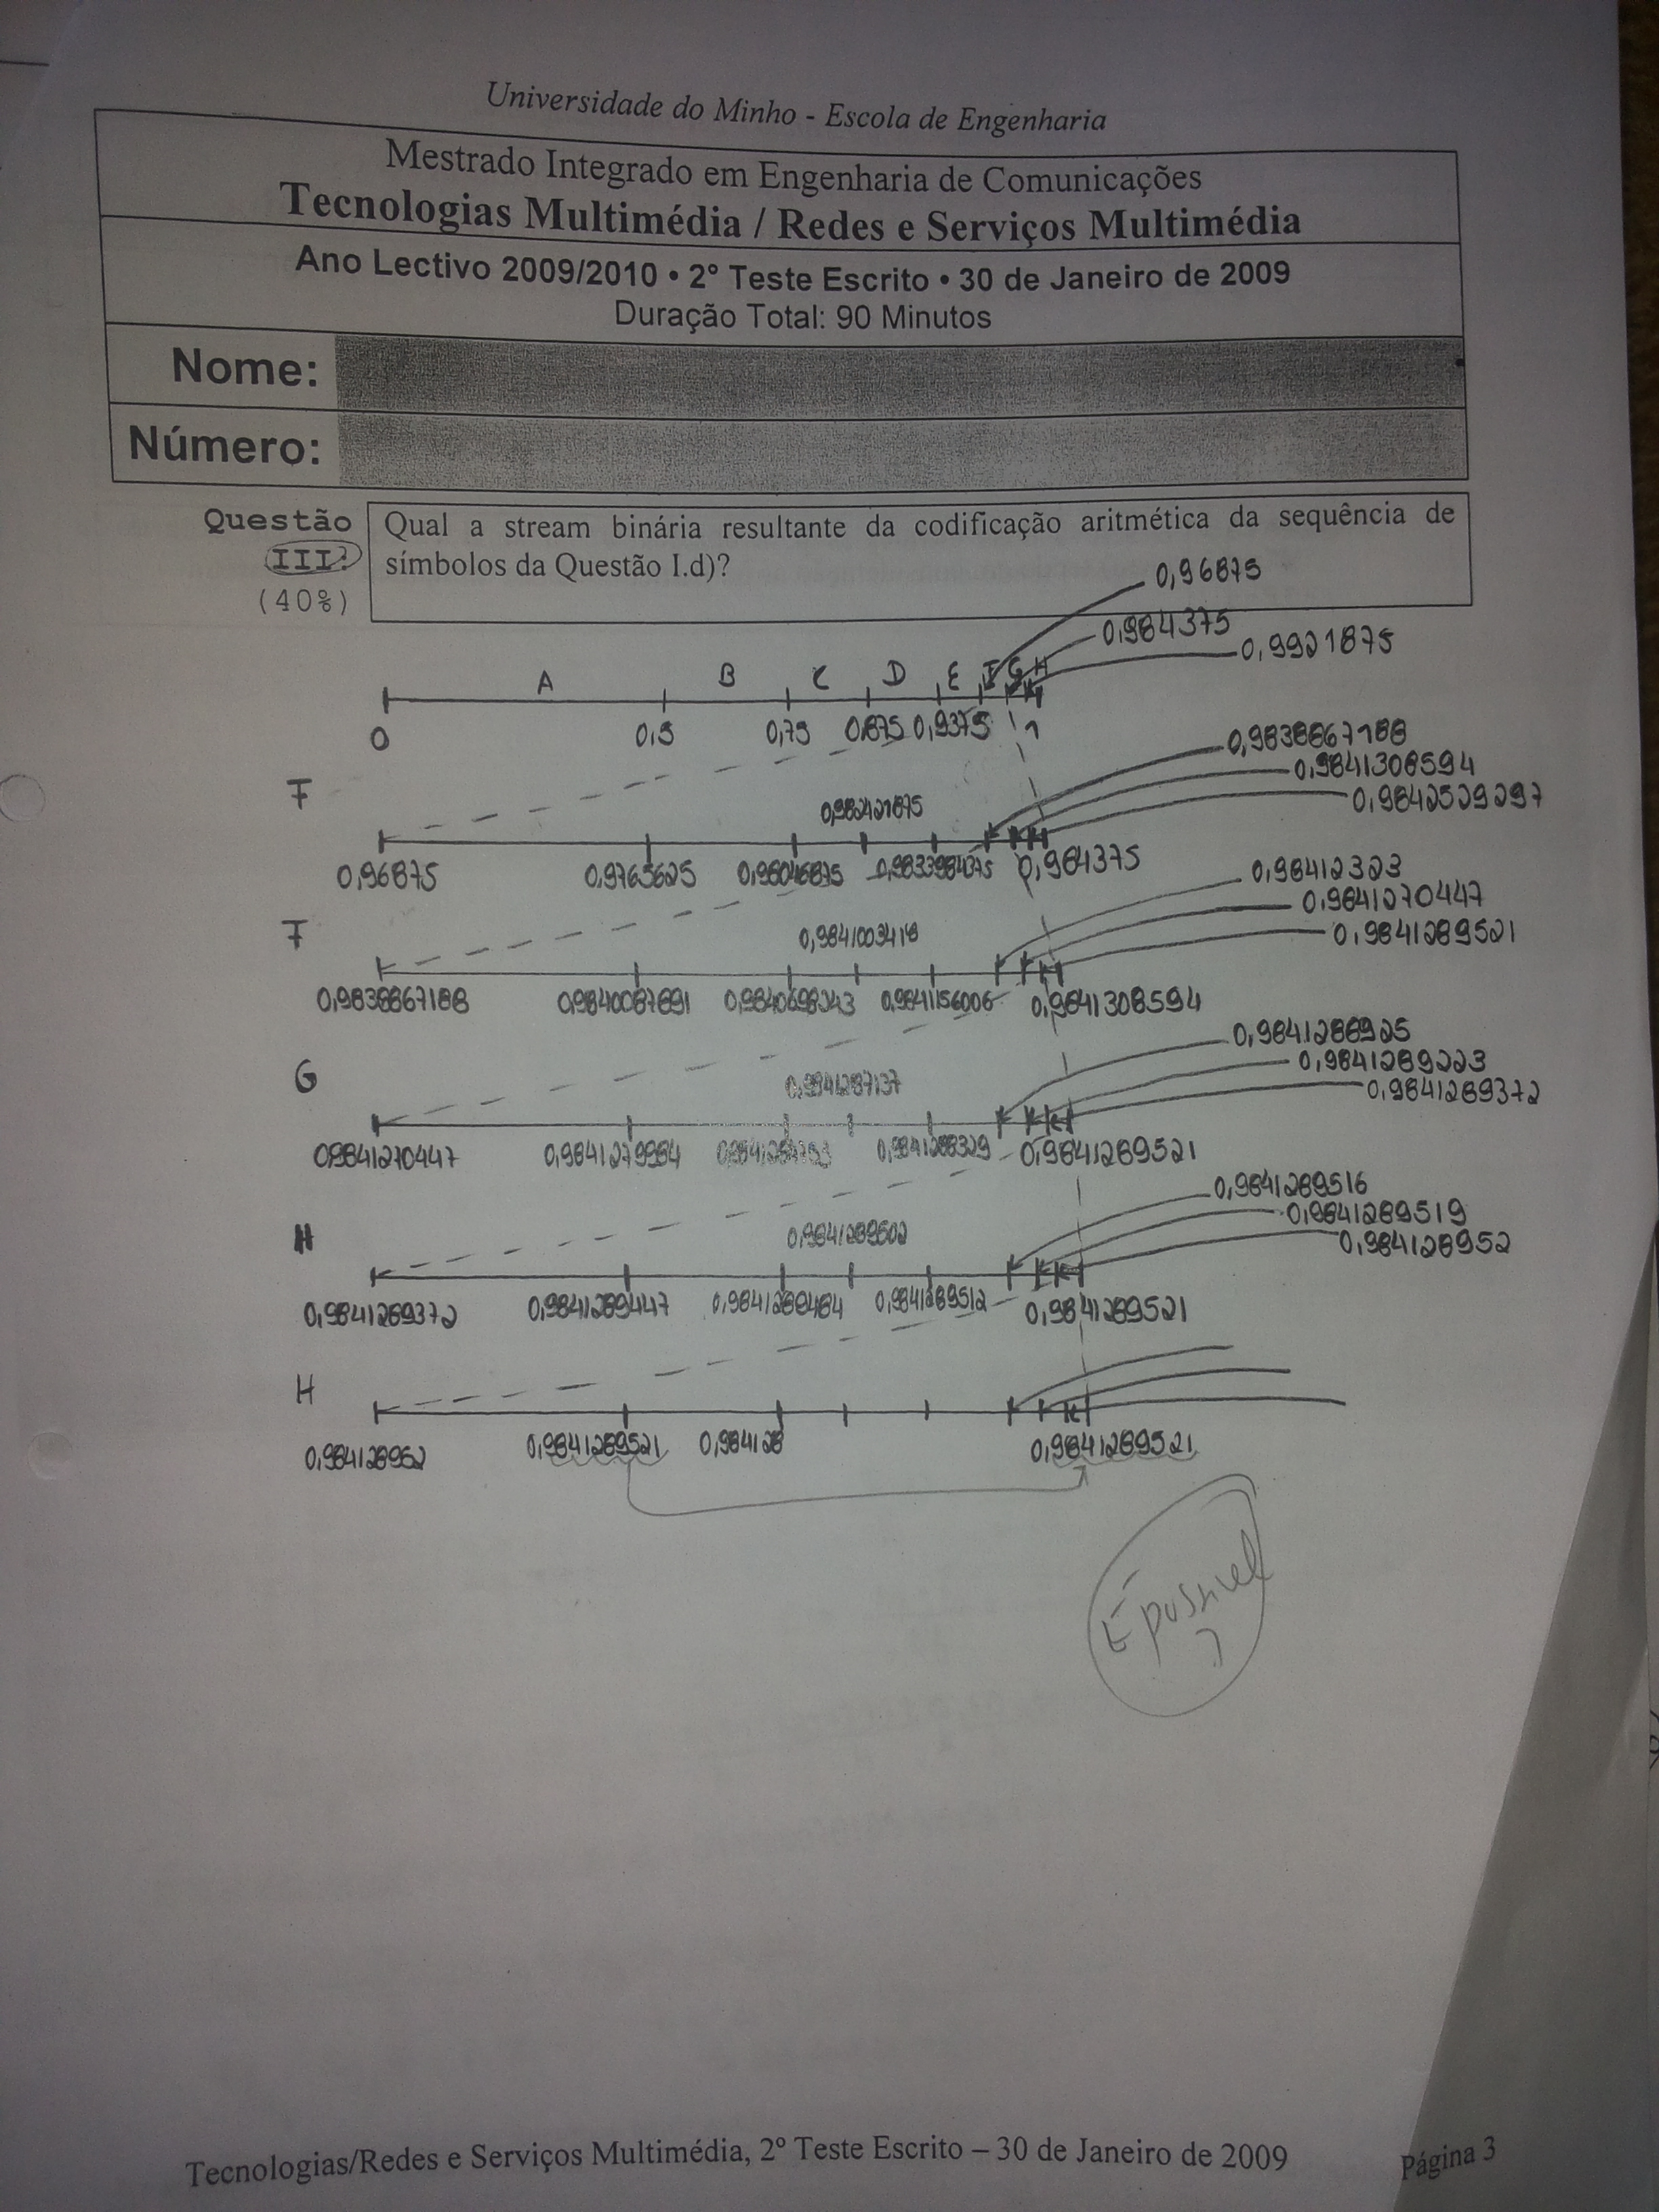 Universidade do Minho - Escola de Engenharia
Mestrado Integrado em Engenharia de Comunicações
Tecnologias Multimédia / Redes e Serviços Multimédia
Ano Lectivo 2009/2010 • 2º Teste Escrito • 30 de Janeiro de 2009
Duração Total: 90 Minutos
Nome:
Número:
Questão III? (40%)
Qual a stream binária resultante da codificação aritmética da sequência de
símbolos da Questão I.d)?
0,96875
0,984375
0,9921875
A B C D E F G H
0 0,5 0,75 0,875 0,9375 1
0,9838867188
0,9841308594
0,9842529297
F
0,982421875
0,96875 0,9765625 0,98046875 0,9833984375 0,984375
0,98412323
0,9841270447
0,9841289521
F
0,9841003418
0,9838867188 0,9840087891 0,9840698243 0,9841156006 0,9841308594
0,9841288925
0,9841289223
0,9841289372
G
0,9841287137
0,9841270447 0,9841279984 0,9841288329 0,9841289521
0,9841289516
0,9841289519
0,984128952
H
0,9841289502
0,9841289372 0,9841289447 0,9841289484 0,9841289512 0,9841289521
H
0,984128952 0,9841289521 0,984128 0,9841289521
É possível ?
Tecnologias/Redes e Serviços Multimédia, 2º Teste Escrito – 30 de Janeiro de 2009
Página 3